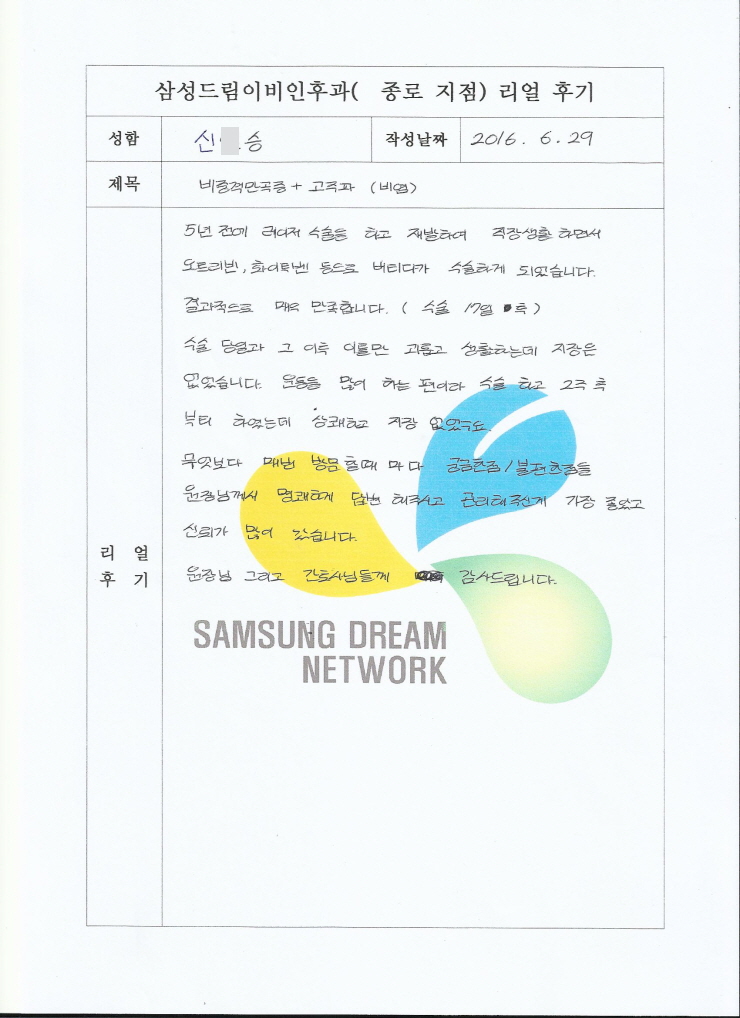 삼성드림이비인후과( 종로 지점) 리얼 후기
성함 신 승 작성날짜 2016. 6. 29
제목 비중격만곡증 + 고주파 (비염)
5년 전에 레이저 수술을 하고 재발하여 직장생활 하면서
오트리빈, 화이투벤 등으로 버티다가 수술하게 되었습니다.
결과적으로 매우 만족합니다. ( 수술 17일 후 )
수술 당일과 그 이후 이틀만 괴롭고 생활하는데 지장은
없었습니다. 운동을 많이 하는 편이라 수술 하고 2주 후
부터 하였는데 상쾌하고 지장 없었구요.
무엇보다 매번 방문 할때 마다 궁금한점/불편한점들
원장님께서 명쾌하게 답변 해주시고 관리해주신게 가장 좋았고
신뢰가 많이 갔습니다.
원장님 그리고 간호사님들께 감사드립니다.
리 얼
후 기
SAMSUNG DREAM
NETWORK